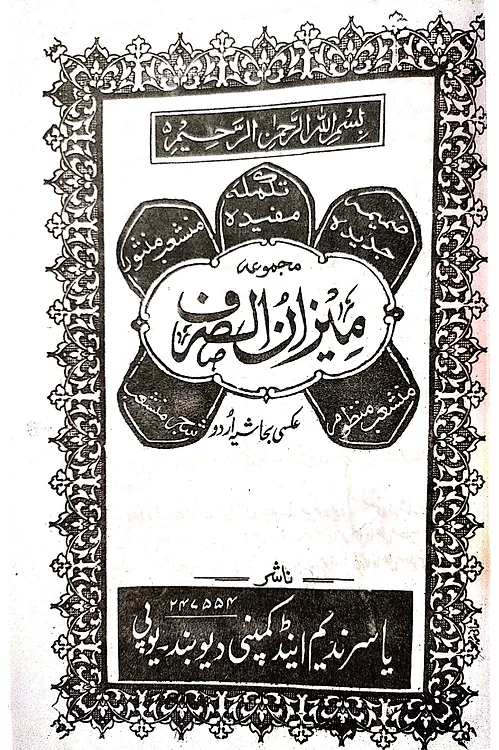 بسم اللہ الرحمٰن الرحیم
تکملہ مفیدہ
ضمیمہ جدیدہ
منشعب منثور
مجموعہ
میزان الصرف
منشعب منظوم
شجرہ منشعب
عکسی بحاشیہ اردو
ناشر
۲۴۷۵۵۴
یاسر ندیم اینڈ کمپنی دیوبند۔ یوپی